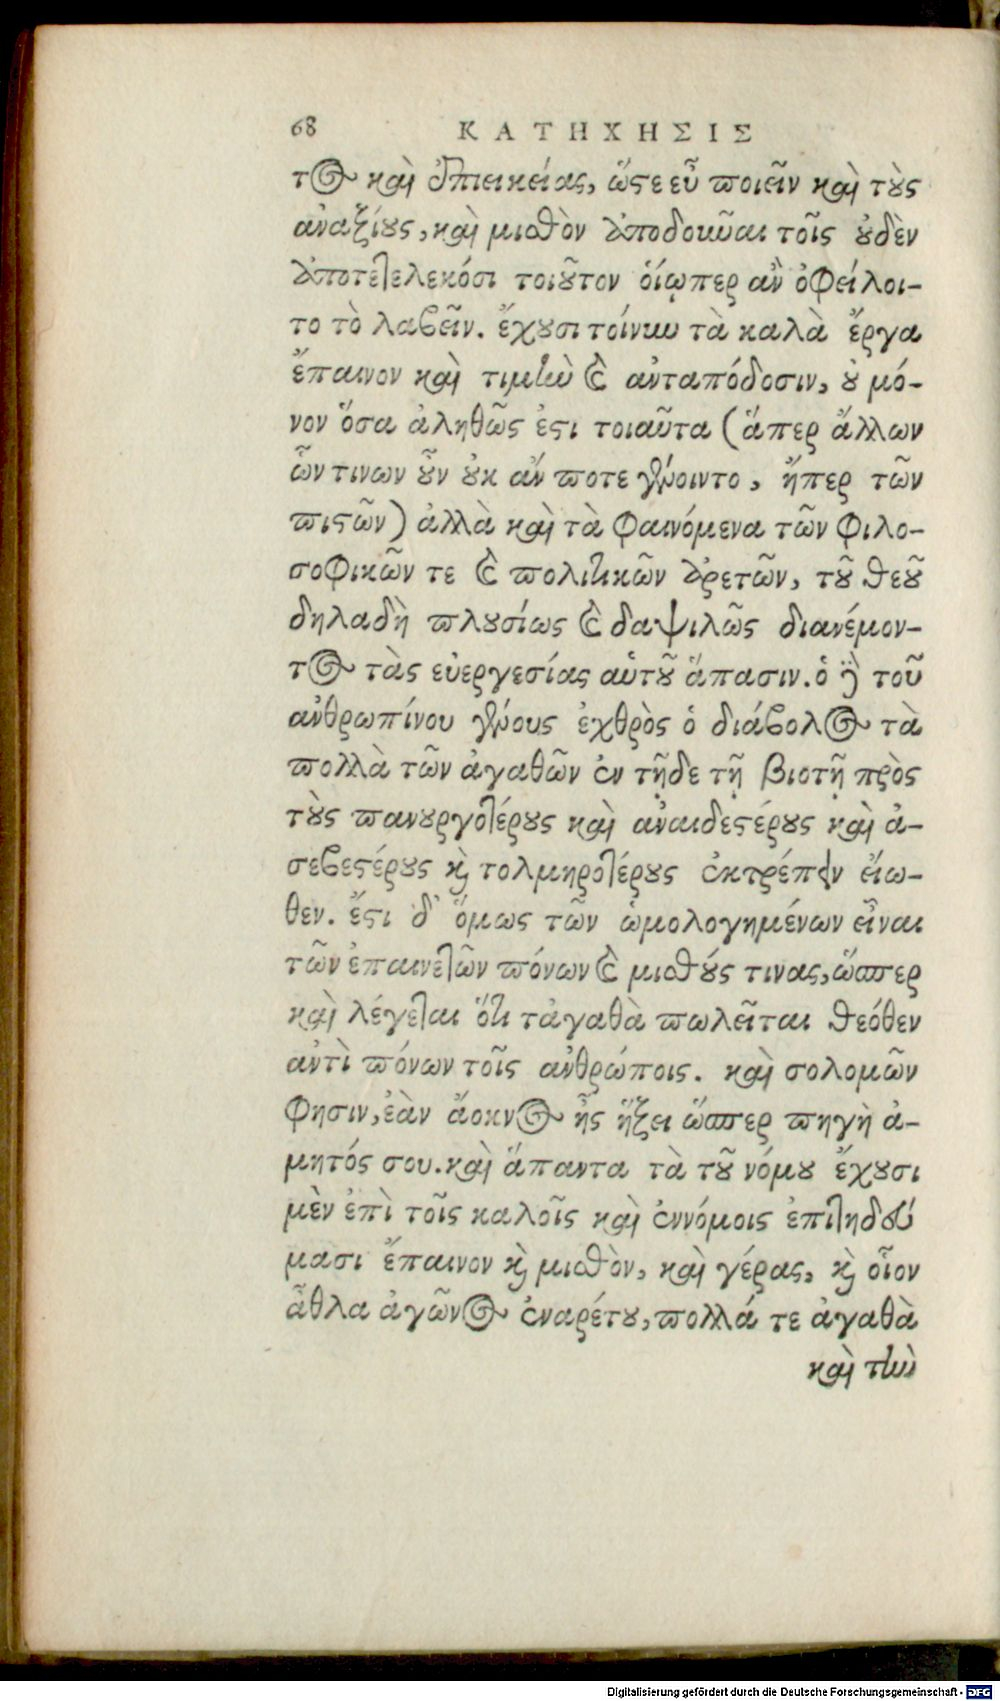 68 ΚΑΤΗΧΗΣΙΣ
τος καὶ ἐπιεικείας, ὥστε εὖ ποιεῖν καὶ τοὺς
ἀναξίους, καὶ μισθὸν ἀποδοῦναι τοῖς οὐδὲν
ἀποτετελεκόσι τοιοῦτον οἵῳπερ ἂν ὀφείλοι-
το τὸ λαβεῖν. ἔχουσι τοίνυν τὰ καλὰ ἔργα
ἔπαινον καὶ τιμὴν καὶ ἀνταπόδοσιν, οὐ μό-
νον ὅσα ἀληθῶς ἐστι τοιαῦτα (ἅπερ ἄλλων
ὧν τινων οὖν οὐκ ἄν ποτε γένοιντο, ἤπερ τῶν
πιστῶν) ἀλλὰ καὶ τὰ φαινόμενα τῶν φιλο-
σοφικῶν τε καὶ πολιτικῶν ἀρετῶν, τοῦ θεοῦ
δηλαδὴ πλουσίως καὶ δαψιλῶς διανέμον-
τος τὰς εὐεργεσίας αὑτοῦ ἅπασιν. ὁ γὰρ τοῦ
ἀνθρωπίνου γένους ἐχθρὸς ὁ διάβολος τὰ
πολλὰ τῶν ἀγαθῶν ἐν τῇδε τῇ βιοτῇ πρὸς
τοὺς πανουργοτέρους καὶ ἀναιδεστέρους καὶ ἀ-
σεβεστέρους καὶ τολμηροτέρους ἐκτρέπειν εἴω-
θεν. ἔστι δ' ὅμως τῶν ὡμολογημένων εἶναι
τῶν ἐπαινετῶν πόνων καὶ μισθούς τινας, ὥσπερ
καὶ λέγεται ὅτι τἀγαθὰ πωλεῖται θεόθεν
ἀντὶ πόνων τοῖς ἀνθρώποις. καὶ σολομῶν
φησιν, ἐὰν ἄοκνος ἦς ἥξει ὥσπερ πηγὴ ἀ-
μητός σου. καὶ ἅπαντα τὰ τοῦ νόμου ἔχουσι
μὲν ἐπὶ τοῖς καλοῖς καὶ ἐννόμοις ἐπιτηδεύ
μασι ἔπαινον καὶ μισθὸν, καὶ γέρας, καὶ οἷον
ἆθλα ἀγῶνος ἐναρέτου, πολλά τε ἀγαθὰ
καὶ τὴν
Digitalisierung gefördert durch die Deutsche Forschungsgemeinschaft - DFG